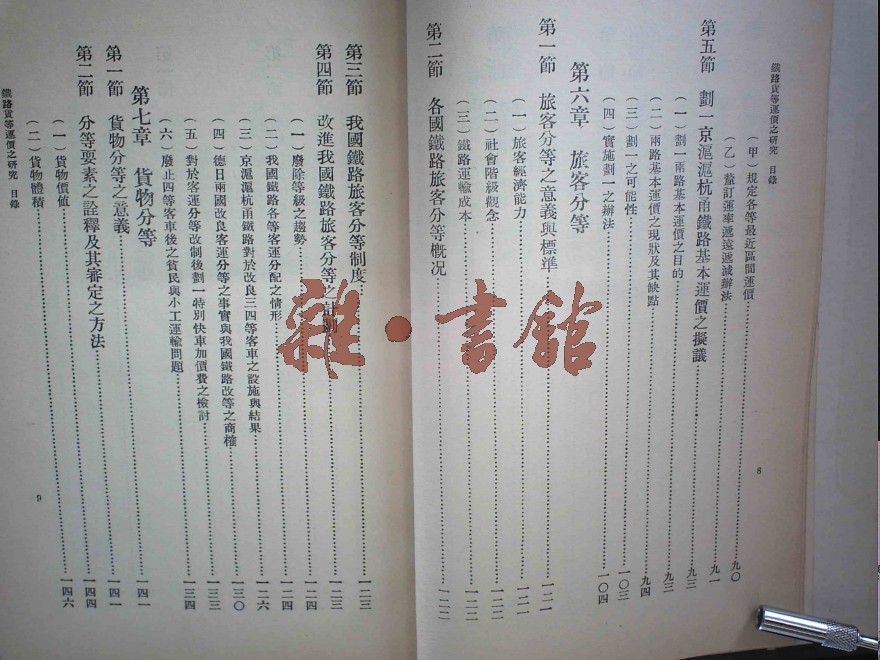 鐵路貨等運價之研究　目錄
（甲）規定各等最近區間運價……九〇
（乙）釐訂運率遞遠遞減辦法……九一
第五節　劃一京滬滬杭甬鐵路基本運價之擬議……九三
（一）劃一兩路基本運價之目的……九三
（二）兩路基本運價之現狀及其缺點……九四
（三）劃一之可能性……一〇三
（四）實施劃一之辦法……一〇四
第六章　旅客分等
第一節　旅客分等之意義與標準……一二一
（一）旅客經濟能力……一二一
（二）社會階級觀念……一二二
（三）鐵路運輸成本……一二二
第二節　各國鐵路旅客分等概况……一二二
8
第三節　我國鐵路旅客分等制度……一二三
第四節　改進我國鐵路旅客分等之計劃……一二三
（一）廢除等級之趨勢……一二四
（二）我國鐵路各等客運分配之情形……一二六
（三）京滬滬杭甬鐵路對於改良三四等客車之設施與結果……一三〇
（四）德日兩國改良客運分等之事實與我國鐵路改等之商榷……一三三
（五）對於客運分等改制後劃一特別快車加價費之檢討……一三四
（六）廢止四等客車後之貧民與小工運輸問題
第七章　貨物分等……一四一
第一節　貨物分等之意義……一四一
第二節　分等要素之詮釋及其審定之方法……一四四
（一）貨物價值……一四六
（二）貨物體積
鐵路貨等運價之研究　目錄
9
雜·書館